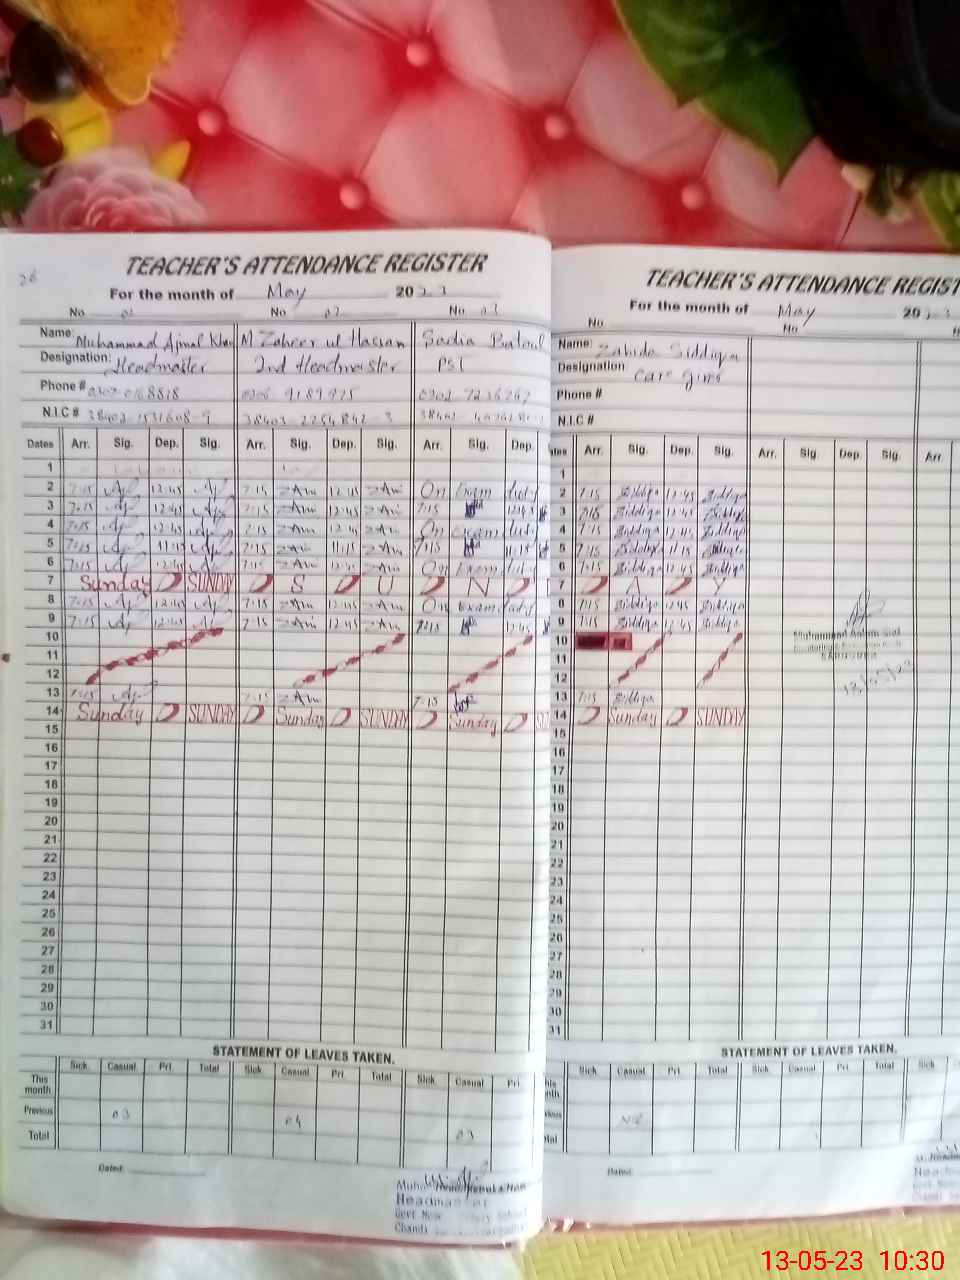 26
TEACHER'S ATTENDANCE REGISTER
For the month of May 2023
No 01 No 02 No 03
Name: Muhammad Ajmal Khan M Zaheer ul Hassan Sadia Batool
Designation: Headmaster 2nd Headmaster PST
Phone # 0306 9189975
N.I.C #
Dates Arr. Sig. Dep. Sig. Arr. Sig. Dep. Sig. Arr. Sig. Dep.
1
2 7:15 12:45 7:15 ZAm 12:45 ZAm On Exam duty
3 7:15 12:45 7:15 ZAm 12:45 ZAm 7:15 12:45
4 7:15 12:45 7:15 ZAm 12:45 ZAm On Exam duty
5 7:15 11:15 7:15 ZAm 11:15 ZAm 7:15 11:15
6 7:15 12:45 7:15 ZAm 12:45 ZAm On Exam duty
7 Sunday D SUNDAY D S D U D N D
8 7:15 12:45 7:15 ZAm 12:45 ZAm On Exam duty
9 7:15 12:45 7:15 ZAm 12:45 ZAm 7:15 12:45
10
11
12
13 7:15 7:15 ZAm 7:15
14 Sunday D SUNDAY D Sunday D SUNDAY D Sunday D
15
16
17
18
19
20
21
22
23
24
25
26
27
28
29
30
31
STATEMENT OF LEAVES TAKEN.
Sick Casual Pri. Total Sick Casual Pri. Total Sick Casual Pri.
This month
Previous 03 04
Total 03
Dated
Headmaster
Govt New School
Chandi
TEACHER'S ATTENDANCE REGIST
For the month of May 2023
No No.
Name: Zahida Siddiqa
Designation: Care giver
Phone #
N.I.C #
ates Arr. Sig. Dep. Sig. Arr. Sig. Dep. Sig. Arr
1
2 7:15 Siddiqa 12:45 Siddiqa
3 7:15 Siddiqa 12:45 Siddiqa
4 7:15 Siddiqa 12:45 Siddiqa
5 7:15 Siddiqa 11:15 Siddiqa
6 7:15 Siddiqa 12:45 Siddiqa
7 D A D Y
8 7:15 Siddiqa 12:45 Siddiqa
9 7:15 Siddiqa 12:45 Siddiqa
10 Muhammad
11
12 13/05/23
13 7:15 Siddiqa
14 D Sunday D SUNDAY
15
16
17
18
19
20
21
22
23
24
25
26
27
28
29
30
31
STATEMENT OF LEAVES TAKEN.
Sick Casual Pri. Total Sick Casual Pri. Total Sick
his nth
vious Nil
otal
Dated
Headm
Govt
Chandi
13-05-23 10:30